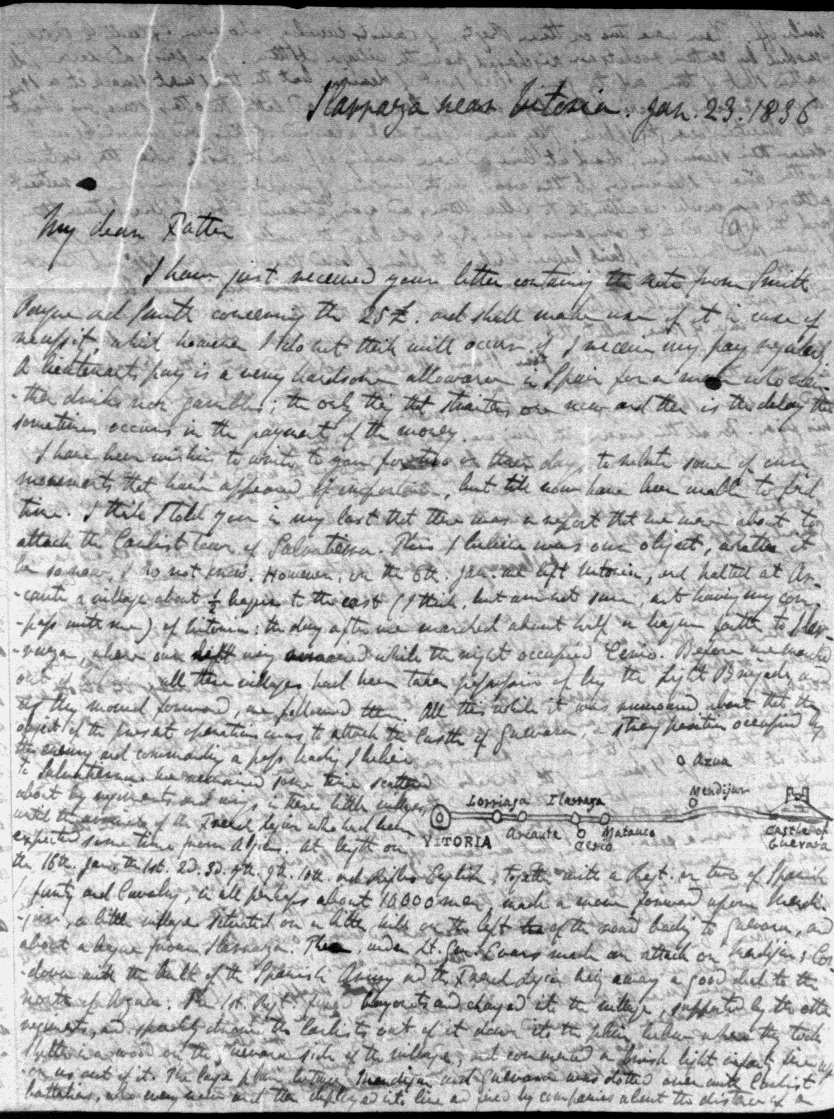 Ilarraza near Vitoria. Jan. 23. 1836
9
My dear Father
I have just received your letter containing the note from Smith
Payne and Smith concerning the 25£. and shall make use of it in case of
necessity which however I do not think will occur if I receive my pay regularly
A lieutenant's pay is a very handsome allowance in Spain for a man who nei-
-ther drinks nor gambles; the only thing that straitens one now and then is the delay that
sometimes occurs in the payment of the money.
I have been wishing to write to you for two or three days to relate some of our
movements that have appeared of importance, but till now have been unable to find
time. I think I told you in my last that there was a report that we were about to
attack the Carlist town of Salvatierra. This I believe was our object, whether it
be so now, I do not know. However, on the 6th. Jan. we left Vitoria, and halted at Ar-
-caute a village about ½ league to the east (I think, but am not sure, not having my com-
-pass with me) of Vitoria: the day after we marched about half a league farther to Ilar-
-raza, where our left wing remained while the right occupied Cerio. Before we marched
out of Vitoria, all these villages had been taken possession of by the Light Brigade, and
as they moved forward, we followed them. All this while it was rumoured about that the
object of the present operations was to attack the Castle of Guevara, a strong position occupied by
the enemy and commanding a pass leading I believe
to Salvatierra. We remained some time scattered
about by regiments and wings in these little villages,
until the arrival of the French Legion who had been
expected some time from Algiers. At length on
the 16th. Jan. the 1st. 2d. 3d. 9th. 10th. and Rifles English, together with a Regt. or two of Spanish
Infantry and Cavalry, in all perhaps about 10,000 men, made a move forward upon Mendi-
-jur, a little village situated on a little hill on the left of the road leading to Guevara, and
about a league from Ilarraza. These under Lt. Gen. Evans made an attack on Mendijur; Cor-
-dova with the bulk of the Spanish Army and the French Legion being away a good deal to the
north of Azua. The 1st. Regt. fixed bayonets and charged into the village, supported by the other
regiments, and speedily drove the Carlists out of it down into the plain below where they took
shelter in a wood on the Guevara side of the village, and commenced a brisk light infantry fire
on us out of it. The large plain between Mendijur and Guevara was dotted over with Carlist
battalions, who every now and then deployed into line and fired by companies about the distance of a
Azua
Mendijur
Lorriaga Ilarraga
Arcaute Matauco
VITORIA Cerio
Castle of
Guevara